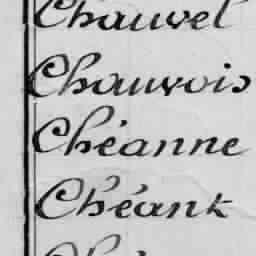 Chauvel
Chauvois
Chéanne
Chéank